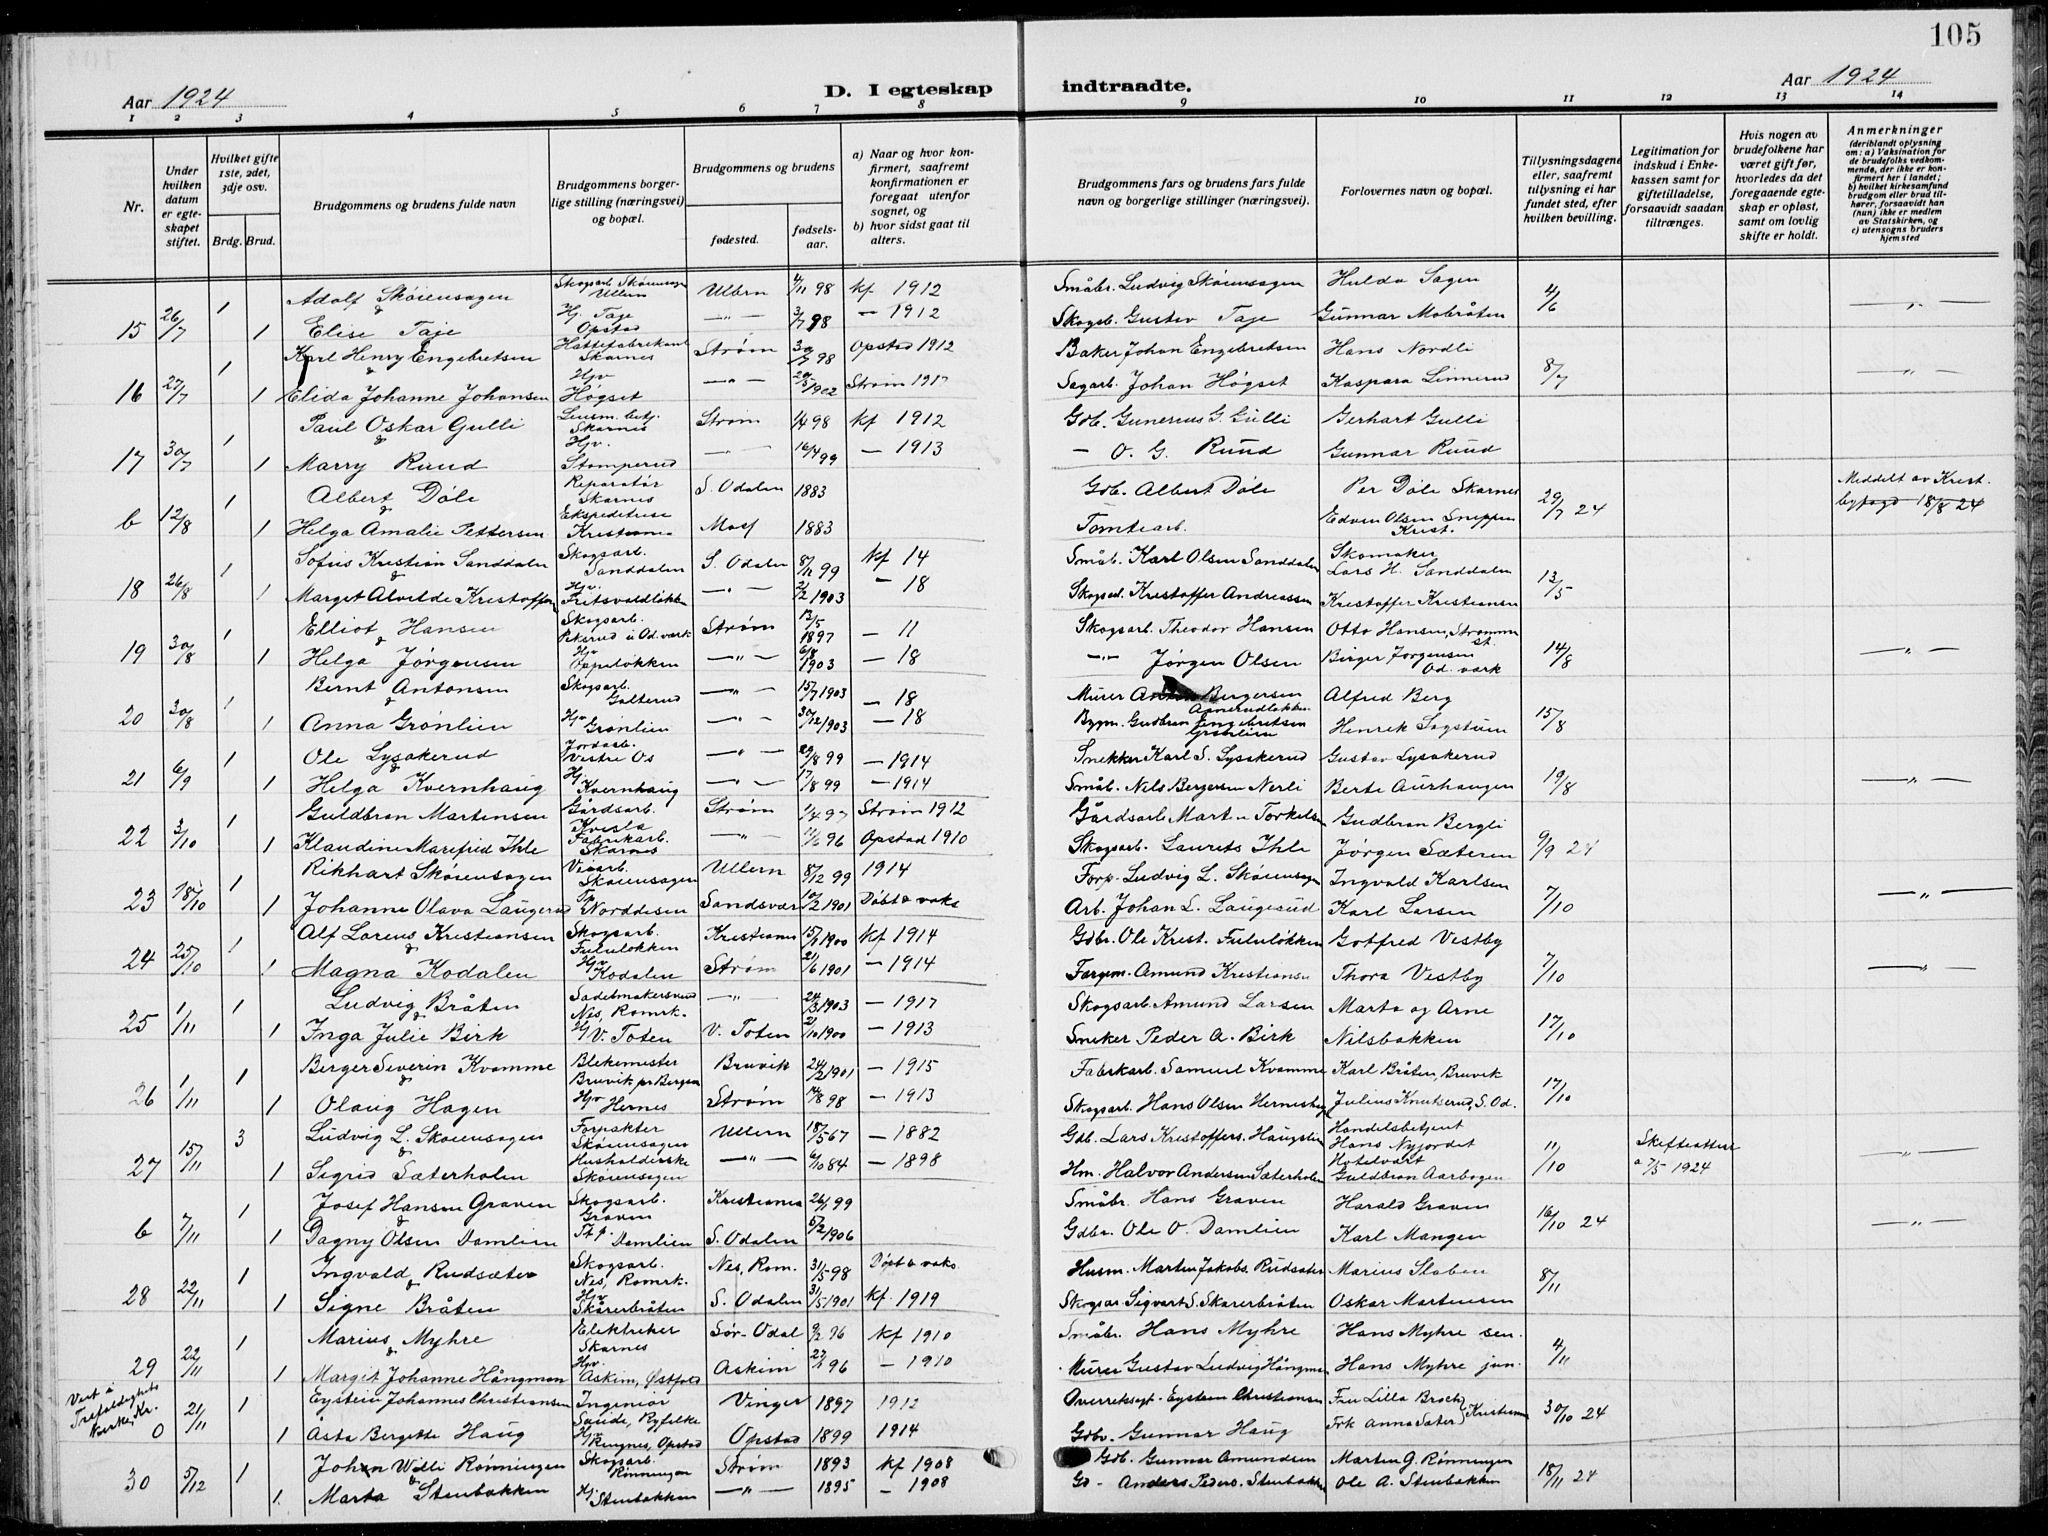 105
Aar 1924
D. I egteskap indtraadte.
Aar 1924
1 2 3 4 5 6 7 8 9 10 11 12 13 14
Nr.
Under hvilken datum er egteskapet stiftet.
Hvilket gifte 1ste, 2det, 3dje osv.
Brdg. Brud.
Brudgommens og brudens fulde navn
Brudgommens borgerlige stilling (næringsvei) og bopæl.
Brudgommens og brudens
fødested.
fødselsaar.
a) Naar og hvor konfirmert, saafremt konfirmationen er foregaat utenfor sognet, og
b) hvor sidst gaat til alters.
Brudgommens fars og brudens fars fulde navn og borgerlige stillinger (næringsvei).
Forlovernes navn og bopæl.
Tillysningsdagene eller, saafremt tillysning ei har fundet sted, efter hvilken bevilling.
Legitimation for indskud i Enkekassen samt for giftetilladelse, forsaavidt saadan tiltrænges.
Hvis nogen av brudefolkene har været gift før, hvorledes da det foregaaende egteskap er opløst, samt om lovlig skifte er holdt.
Anmerkninger (deriblandt oplysning om: a) Vaksination for de brudefolks vedkommende, der ikke er konfirmert her i landet; b) hvilket kirkesamfund brudgom eller brud tilhører, forsaavidt han (hun) ikke er medlem av Statskirken, og c) utensogns bruders hjemsted
15 26/7 1 Adolf Skøiensagen Skogsarb. Skøiensagen Ullern Ullern 4/11 98 kf 1912 Småbr. Ludvig Skøiensagen Hulda Sagen 4/6
1 Elise Taje Hj. Taje Opstad —"— 3/7 98 — 1912 Skogsb. Gustav Taje Gunnar Mobråten
16 27/7 1 Karl Henry Engebretsen Hattefabrikant Skarnes Strøm 30/7 98 Opstad 1912 Baker Johan Engebretsen Hans Nordli 8/7
1 Elida Johanne Johansen Hjv Høgset —"— 1902 Strøm 1917 Sagarb. Johan Høgset Kaspara Linnerud
17 30/7 1 Paul Oskar Gulli Lensm. betj. Skarnes Strøm 98 kf 1912 Gdb. Gunerius G. Gulli Gerhart Gulli
1 Marry Ruud Hjv. Stomperud —"— 16/4 99 — 1913 — O. G. Ruud Gunnar Ruud
b 12/8 1 Albert Døle Reparatør Skarnes S. Odalen 1883 Gdb. Albert Døle Per Døle Skarnes 29/7 24 Meddelt av Krist. byfogd 18/8 24
1 Helga Amalie Pettersen Ekspeditrise Kristiania Moss 1883 Tomtearb. Edvin Olsen Krist.
18 26/8 1 Sofus Kristian Sanddalen Skogsarb. Sanddalen S. Odalen 8/12 99 kf 14 Småb. Karl Olsen Sanddalen Skomaker Lars H. Sanddalen 13/5
1 Marget Alvilde Kristoffersen Hjv. Fritsvoldløkken —"— 2/2 1903 — 18 Skogsarb. Kristoffer Andreassen Kristoffer Kristiansen
19 30/8 1 Elliot Hansen Skogsarb. Pekerud i Od. værk Strøm 12/5 1897 — 11 Skogsarb. Theodor Hansen Otto Hansen, Strømmen st. 14/8
1 Helga Jørgensen Hjv Oppeløkken —"— 6/8 1903 — 18 —"— Jørgen Olsen Birger Jørgensen Od. værk
20 30/8 1 Bernt Antonsen Skogsarb. Galterud —"— 15/7 1903 — 18 Murer Anton Bergersen Alfred Berg 15/8
1 Anna Grønlien Hjv Grønlien —"— 30/12 1903 — 18 Bygm. Gudbran Engebretsen Grønlien Henrik Sagstuen
21 6/9 1 Ole Lysakerud Jordarb. Vestre Os —"— 29/8 99 — 1914 Snekker Karl S. Lysakerud Gustav Lysakerud 19/8
1 Helga Kvernhaug Hj. Kvernhaug —"— 17/8 99 — 1914 Småb. Nils Bergersen Nerli Berte Aurhaugen
22 3/10 1 Guldbran Martinsen Gårdsarb. Kvisla Strøm 1/4 97 Strøm 1912 Gårdsarb. Martin Torkelsen Gudbran Bergli 9/9 24
1 Klaudine Marefred Ihle Fabrikarb. Skarnes —"— 96 Opstad 1910 Skogsarb. Laurits Ihle Jørgen Sæteren
23 18/10 1 Rikhart Skøiensagen Veiarb. Skøiensagen Ullern 8/12 99 1914 Forp. Ludvig L. Skøiensagen Ingvald Karlsen 7/10
1 Johanne Olava Laugerud Norddesen Sandsvær 10/2 1901 Døbt & vaks Arb. Johan L. Laugerud Karl Larsen
24 25/10 1 Alf Lorens Kristiansen Skogsarb. Fululøkken Kristiania 15/1 1900 kf 1914 Gdbr. Ole Krist. Fululøkken Gotfred Vestby 7/10
1 Magna Kodalen Hjv Kodalen Strøm 21/6 1901 — 1914 Fargem. Amund Kristiansen Thora Vestby
25 1/11 1 Ludvig Bråten Sadelmakersvend Nes, Romrk. —"— 24/3 1903 — 1917 Skogsarb. Amund Larsen Marta og Arne 17/10
1 Inga Julie Birk Hj V. Toten V. Toten 21/10 1900 — 1913 Sneker Peder A. Birk Nilsbakken
26 1/11 1 Berger Severin Kvamme Blekemester Bruvik pr Bergen Bruvik 24/2 1901 — 1915 Fabrikarb. Samuel Kvamme Karl Bråten, Bruvik 17/10
1 Olaug Hagen Hjv Hernes Strøm 98 — 1913 Skogsarb. Hans Olsen Julius Knutserud, S. Od.
27 15/11 3 Ludvig L. Skøiensagen Forpakter Skøiensagen Ullern 18/5 67 — 1882 Gdb. Lars Kristoffers. Haugslien Handelsbetjent Hans Nyjordet 11/10 Skifteattest a 7/5 1924
1 Sigrid Sæterholen Husholderske Skøiensagen —"— 6/10 84 — 1898 Hm. Halvor Andersen Sæterholen Hotelvært Guldbran Aarbogen
b 7/11 1 Josef Hansen Graven Skogsarb. Graven Kristiania 26/1 99 Småbr. Hans Graven Harald Graven 16/10 24
1 Dagny Olsen Damlien Damlien S. Odalen 5/2 1906 Gdbr. Ole O. Damlien Karl Mangen
28 22/11 1 Ingvald Rudsæter Skogsarb. Nes, Romrk. Nes, Rom. 31/5 98 Døpt & vaks. Husm. Martin Jakobs. Rudsæter Marius Staben 8/11
1 Signe Bråten Hjv Skårerbråten S. Odalen 31/5 1901 kf. 1919 Skogsar. Sigvart S. Skårerbråten Oskar Martinsen
29 22/11 1 Marius Myhre Elektriker Skarnes Sør-Odal 9/2 96 kf 1910 Småbr. Hans Myhre Hans Myhre sen. 4/11
1 Margit Johanne Hångman Hjv. Askim, Østfold Askim 96 — 1910 Murer Gustav Ludvig Hångman Hans Myhre jun.
Viet i Trefoldighets kirke, Kr.
0 21/11 1 Eystein Johannes Christiansen Ingeniør Saude, Ryfylke Vinger 1897 1912 Overrettssagf. Eystein Christiansen Fru Lilla Broch 30/10 24
1 Åsta Bergitte Haug Hjv Ringnes, Opstad Opstad 1899 1914 Gdbr. Gunnar Haug Frk Anna Sæter Kristiania
30 5/12 1 Johan Willi Rønningen Skogsarb. Rønningen Strøm 1893 kf 1908 Gdb. Gunnar Amundsen Martin G. Rønningen 18/11 24
1 Marta Stenbakken Hj. Stenbakken —"— 1895 — 1908 Gd - Anders Peders. Stenbakken Ole A. Stenbakken